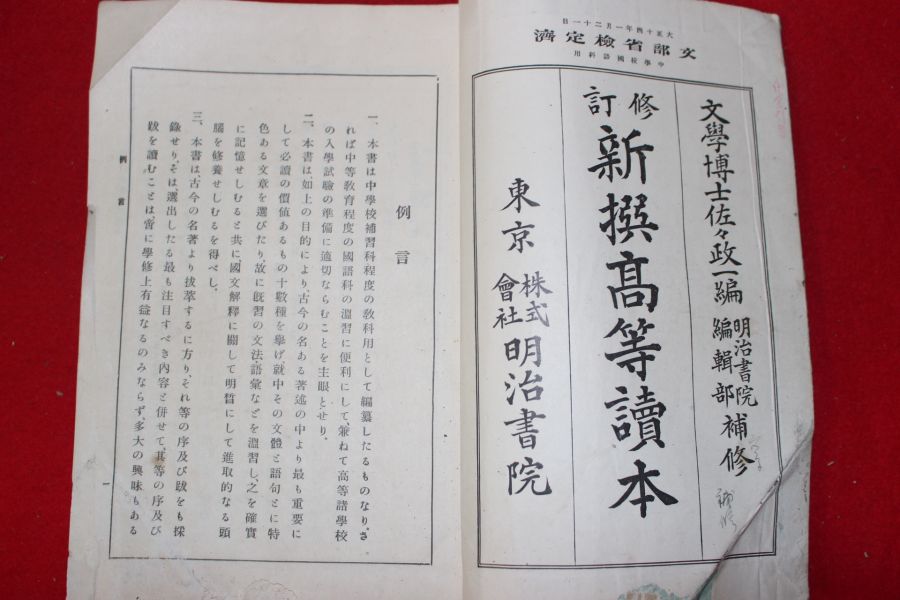 大正十四年一月二十一日
文部省檢定濟
中學校國語科用
文學博士佐々政一編
明治書院編輯部補修
修訂
新撰高等讀本
東京
株式會社明治書院
補修
例言
一、本書は中學校補習科程度の敎科用として編纂したるものなり。さ
れば中等敎育程度の國語科の溫習に便利にして、兼ねて高等諸學校
の入學試驗の準備に適切ならむことを主眼とせり。
二、本書は、如上の目的により、古今の名ある著述の中より最も重要に
して必讀の價値あるもの十數種を擧げ、就中その文體と語句とに特
色ある文章を選びたり、故に既習の文法・語彙などを溫習し、之を確實
に記憶せしむると共に、國文解釋に關して明晳にして進取的なる頭
腦を修養せしむるを得べし。
三、本書は、古今の名著より拔萃するに方り、それ等の序及び跋をも採
錄せり、そは、選出したる最も注目すべき內容と併せて、其等の序及び
跋を讀むことは、啻に學修上有益なるのみならず、多大の興味もある
例言
一